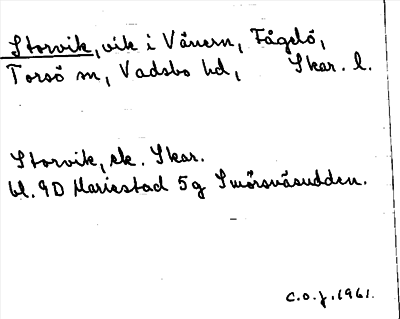 Storvik, vik i Vänern, Fågelö,
Torsö sn, Vadsbo hd, Skar. l.
Storvik, ek. Skar.
bl. 9D Mariestad 5g Smörsväsudden.
C.O.J. 1961.